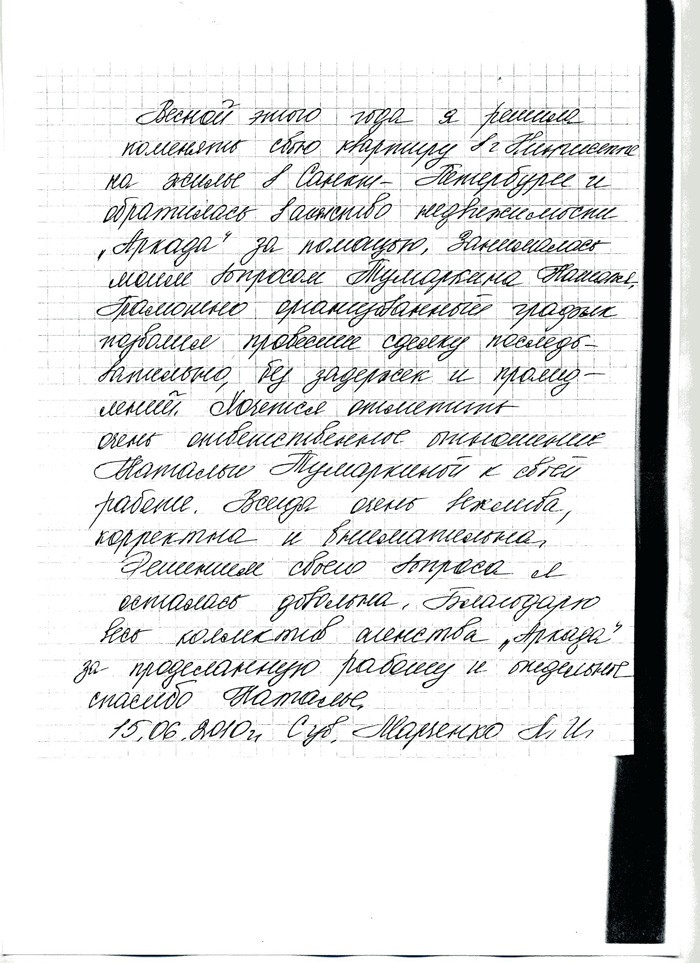 Весной этого года я решила
поменять свою квартиру в г. Кингисеппе
на жилье в Санкт-Петербурге и
обратилась в агенство недвижимости
„Аркада" за помощью. Занималась
моим вопросом Тумаркина Наталья.
Грамотно организованный график
позволил провести сделку последо-
вательно, без задержек и промед-
лений. Хочется отметить
очень ответственное отношение
Натальи Тумаркиной к своей
работе. Всегда очень вежлива,
корректна и внимательна.
Решением своего вопроса я
осталась довольна. Благодарю
весь коллектив агенства „Аркада"
за проделанную работу и отдельное
спасибо Наталье.
15.06.2010г. С ув. Марченко Л. И.